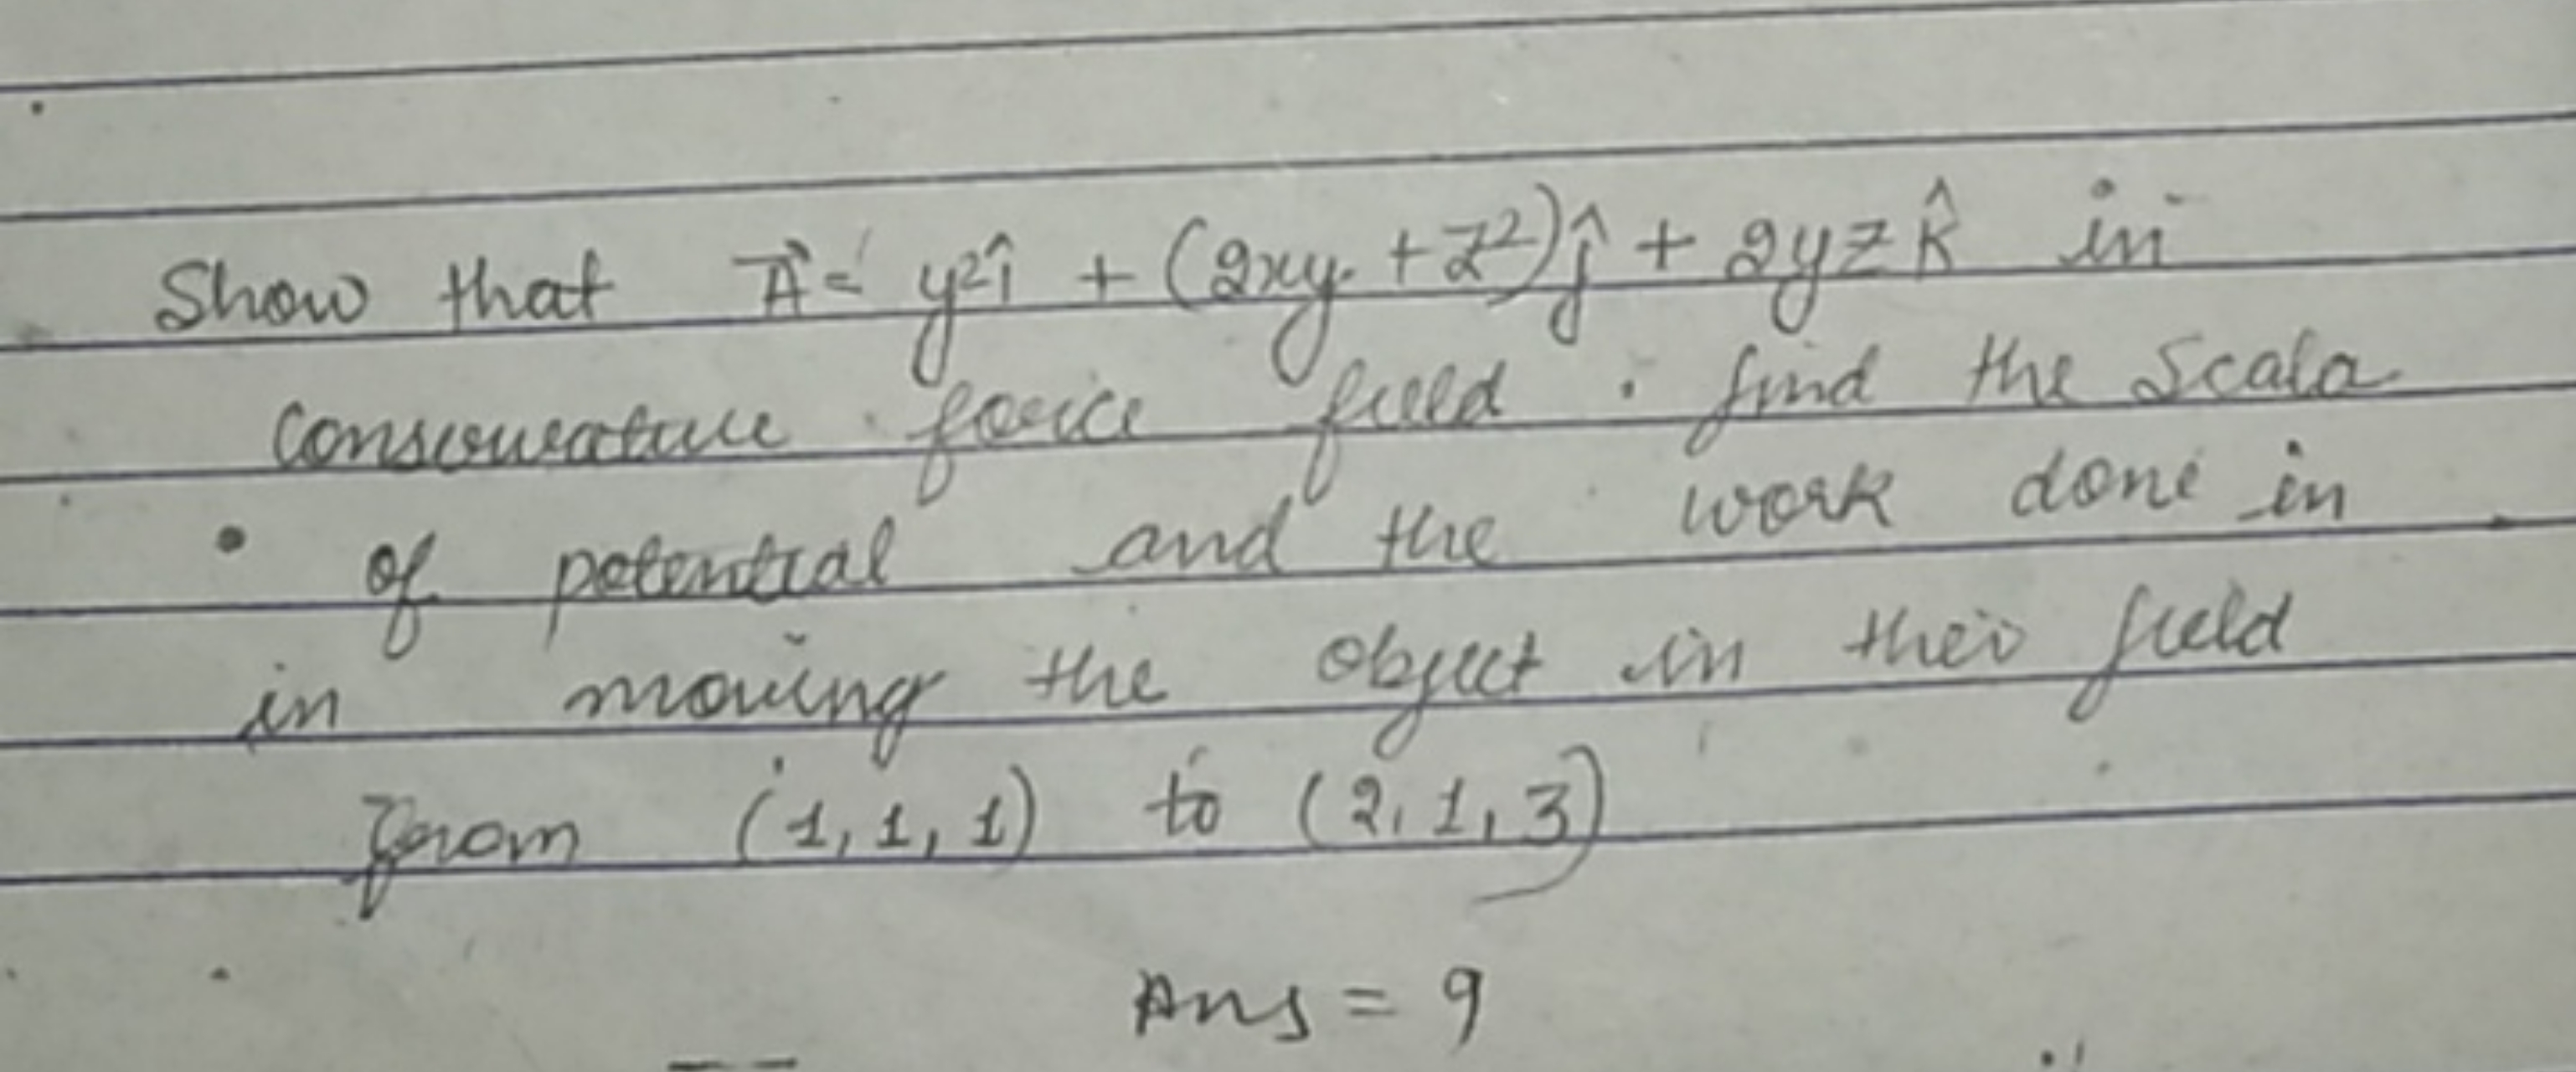 Show that A⃗ = y²î + (2xy + z²)ĵ + 2yz k̂ in
conservative force field . find the Scala
of potential and the work done in
in moving the object in their field
from (1, 1, 1) to (2, 1, 3)
Ans = 9